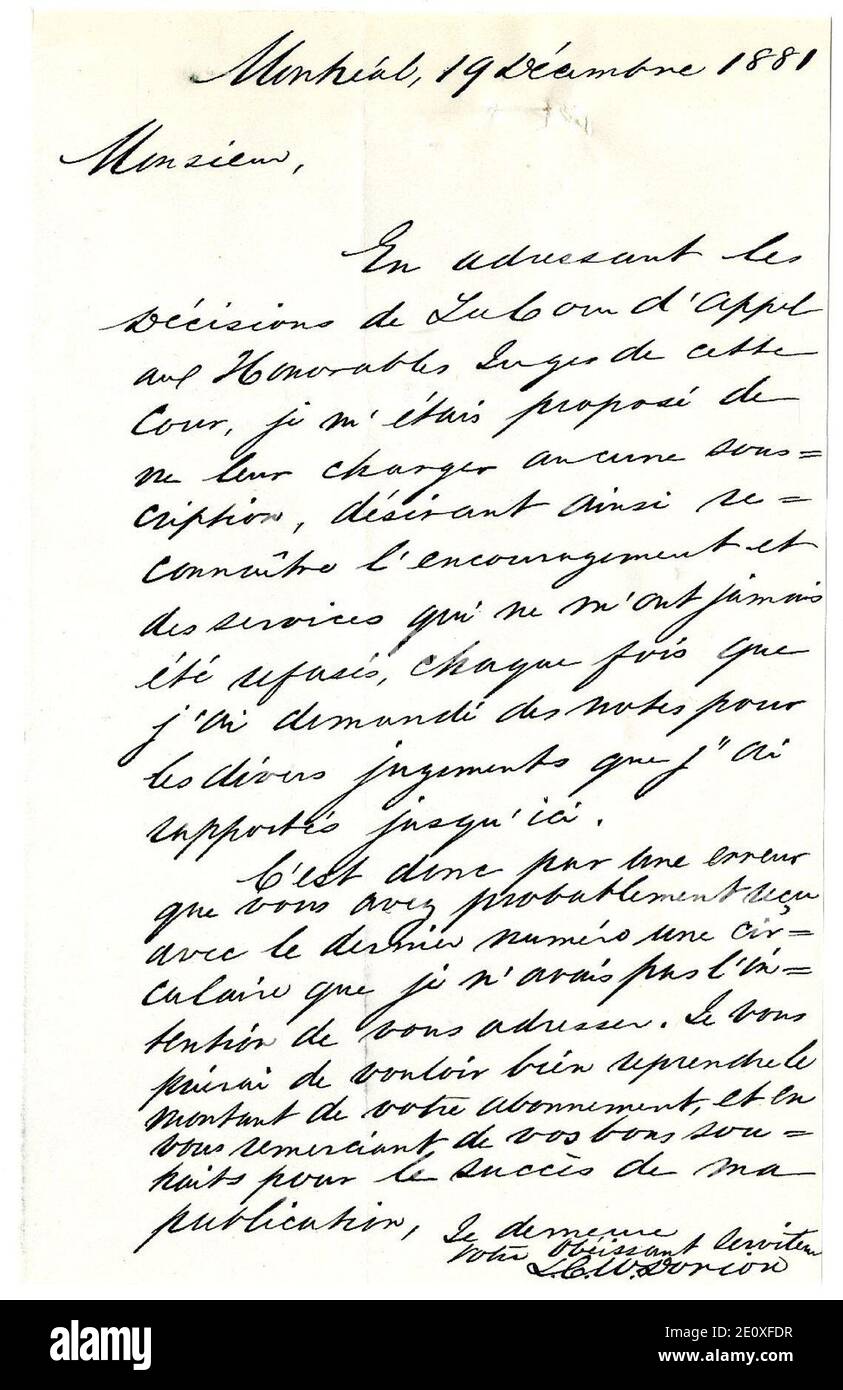 Montréal, 19 Décembre 1881
Monsieur,
En adressant les
Décisions de La Cour d'Appel
aux Honorables Juges de cette
Cour, je m'étais proposé de
ne leur charger aucune sous=
cription, désirant ainsi re=
connaître l'encouragement et
des services qui ne m'ont jamais
été refusés, chaque fois que
j'ai demandé des notes pour
les divers jugements que j'ai
rapportés jusqu'ici.
C'est donc par une erreur
que vous avez probablement reçu
avec le dernier numéro une cir=
culaire que je n'avais pas l'in=
tention de vous adresser. Je vous
prierai de vouloir bien reprendre le
montant de votre abonnement, et en
vous remerciant de vos bons sou=
haits pour le succès de ma
publication,
Je demeure
Votre Obéissant Serviteur
L.C.W. Dorion
alamy
Image ID: 2E0XFDR
www.alamy.com